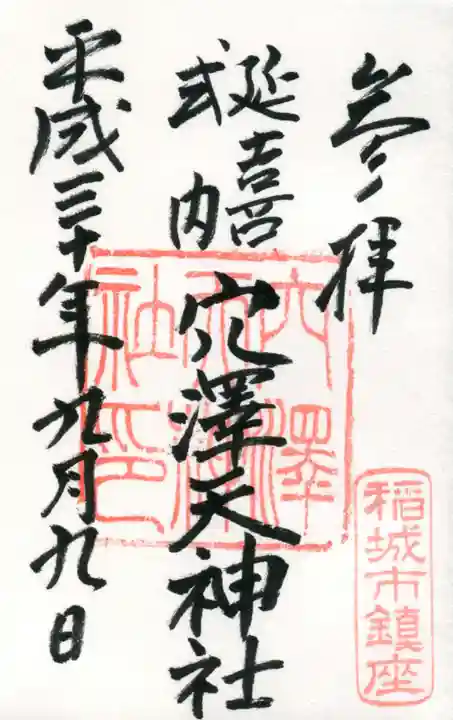 参拝
延喜
式内
穴澤天神社
平成三十年九月九日
穴澤天神社印
稲城市鎮座